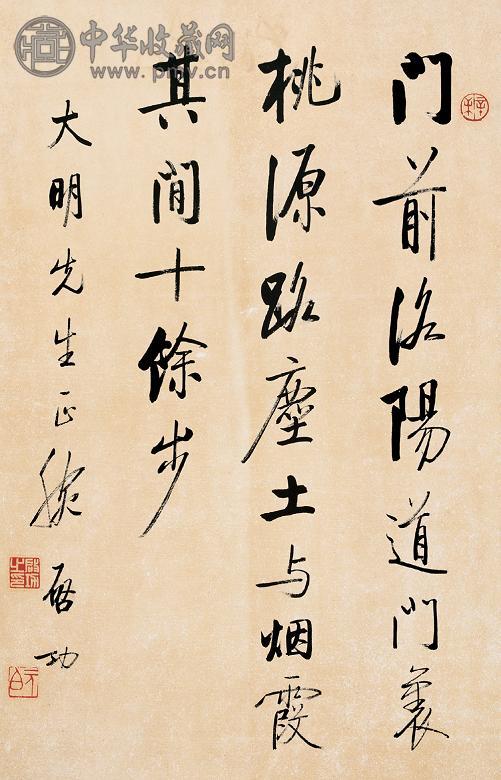 中华收藏网
www.pmv.cn
门前洛陽道門裏
桃源路塵土与烟霞
其間十餘步
大明先生正腕
启功